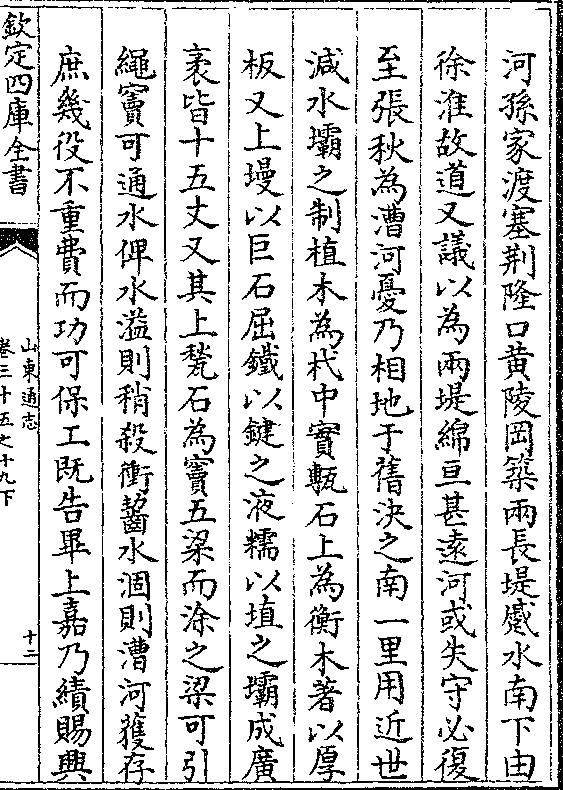 河孫家渡塞荆隆口黄陵岡築兩長堤蹙水南下由
徐淮故道又議以為兩堤綿亘甚遠河或失守必復
至張秋為漕河憂乃相地于舊決之南一里用近世
減水壩之制植木為杙中實甎石上為衡木著以厚
板又上墁以巨石屈鐵以鍵之液糯以埴之壩成廣
袤皆十五丈又其上甃石為竇五梁而涂之梁可引
繩竇可通水俾水溢則稍殺衝齧水涸則漕河獲存
庶幾役不重費而功可保工既告畢上嘉乃績賜興
欽定四庫全書
山東通志
卷三十五之十九下
十二